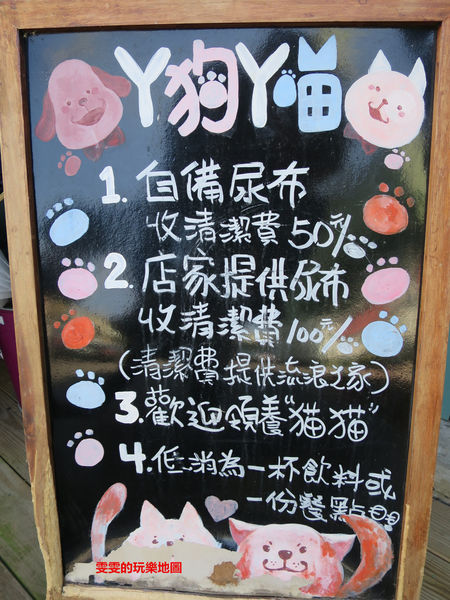 丫狗丫猫
1. 自備尿布
收清潔費50元
2. 店家提供尿布
收清潔費100元
(清潔費提供流浪之家)
3. 歡迎領養"猫猫"
4. 低消為一杯飲料或
一份餐點
雯雯的玩樂地圖